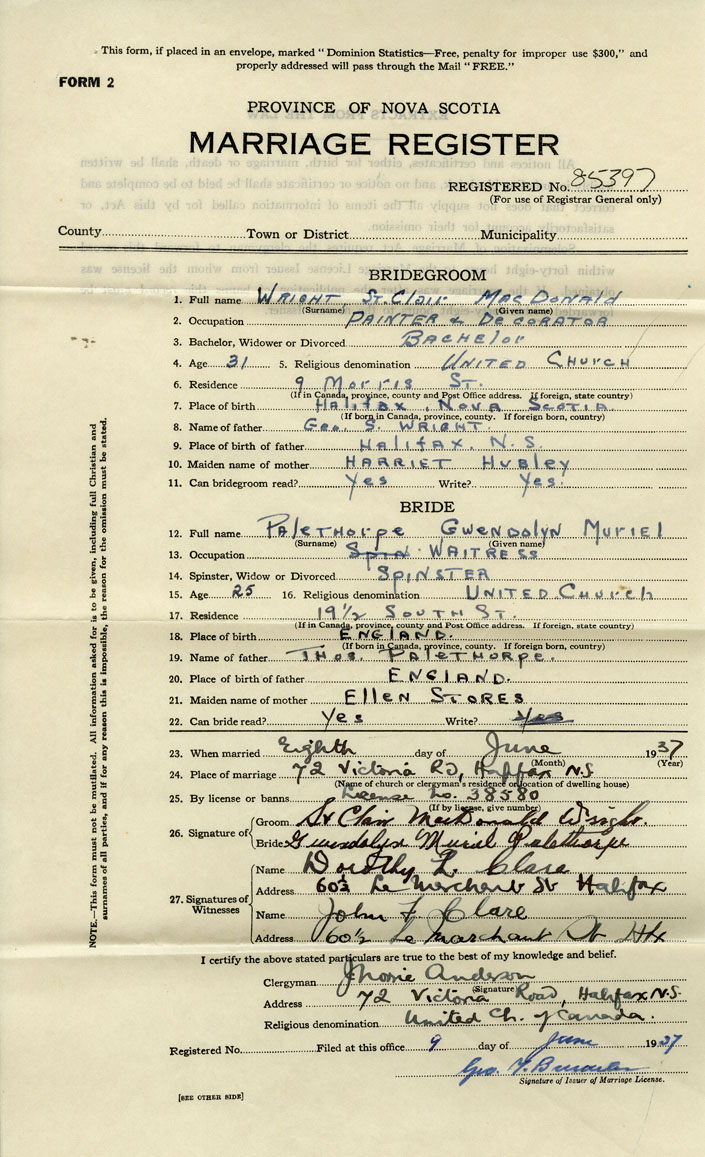 This form, if placed in an envelope, marked “Dominion Statistics—Free, penalty for improper use $300,” and
properly addressed will pass through the Mail “FREE.”
FORM 2
PROVINCE OF NOVA SCOTIA
MARRIAGE REGISTER
REGISTERED No. 85397
(For use of Registrar General only)
County Town or District Municipality
BRIDEGROOM
1. Full name WRIGHT, St. Clair MacDonald
(Surname) (Given name)
2. Occupation PAINTER & DECORATOR
3. Bachelor, Widower or Divorced Bachelor
4. Age 31 5. Religious denomination UNITED CHURCH
6. Residence 9 Morris St.
(If in Canada, province, county and Post Office address. If foreign, state country)
7. Place of birth Halifax, Nova Scotia
(If born in Canada, province, county. If foreign born, country)
8. Name of father Geo. S. WRIGHT.
9. Place of birth of father Halifax, N.S.
10. Maiden name of mother HARRIET HUBLEY
11. Can bridegroom read? Yes Write? Yes.
BRIDE
12. Full name Palethorpe Gwendolyn Muriel
(Surname) (Given name)
13. Occupation Spin WAITRESS
14. Spinster, Widow or Divorced SPINSTER
15. Age 25 16. Religious denomination UNITED CHURCH
17. Residence 19½ SOUTH ST.
(If in Canada, province, county and Post Office address. If foreign, state country)
18. Place of birth ENGLAND.
(If born in Canada, province, county. If foreign born, country)
19. Name of father Thos. Palethorpe.
20. Place of birth of father ENGLAND.
21. Maiden name of mother Ellen Stores
22. Can bride read? Yes Write? Yes
23. When married Eighth day of June 1937
(Month) (Year)
24. Place of marriage 72 Victoria Rd, Halifax N.S.
(Name of church or clergyman's residence or location of dwelling house)
25. By license or banns License No. 38580
(If by license, give number)
26. Signature of Groom St Clair MacDonald Wright.
Bride Gwendolyn Muriel Palethorpe
27. Signatures of Witnesses
Name Dorothy L. Clare
Address 60½ Le Merchant St Halifax
Name John F Clare
Address 60½ Le Marchant St Hfx
I certify the above stated particulars are true to the best of my knowledge and belief.
Clergyman Anderson
(Signature)
Address 72 Victoria Road, Halifax N.S.
Religious denomination United Ch. of Canada.
Registered No. Filed at this office 9 day of June 1937
Geo.
Signature of Issuer of Marriage License.
[SEE OTHER SIDE]
NOTE.—This form must not be mutilated. All information asked for is to be given, including full Christian and
surnames of all parties, and if for any reason this is impossible, the reason for the omission must be stated.